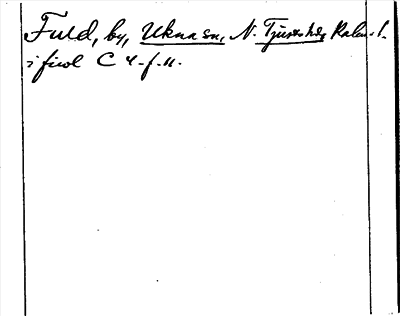 Fuld, by, Ukna sn, N. Tjusts hd, Kalm. l.
i fivol C 4-f-11.